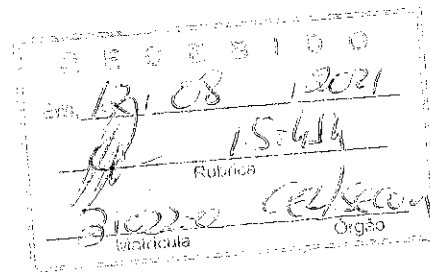 RECEBIDO
Em, 12, 08, 2021
15:44h
Rubrica
31022-02 CEL/SECOM
Matrícula Órgão